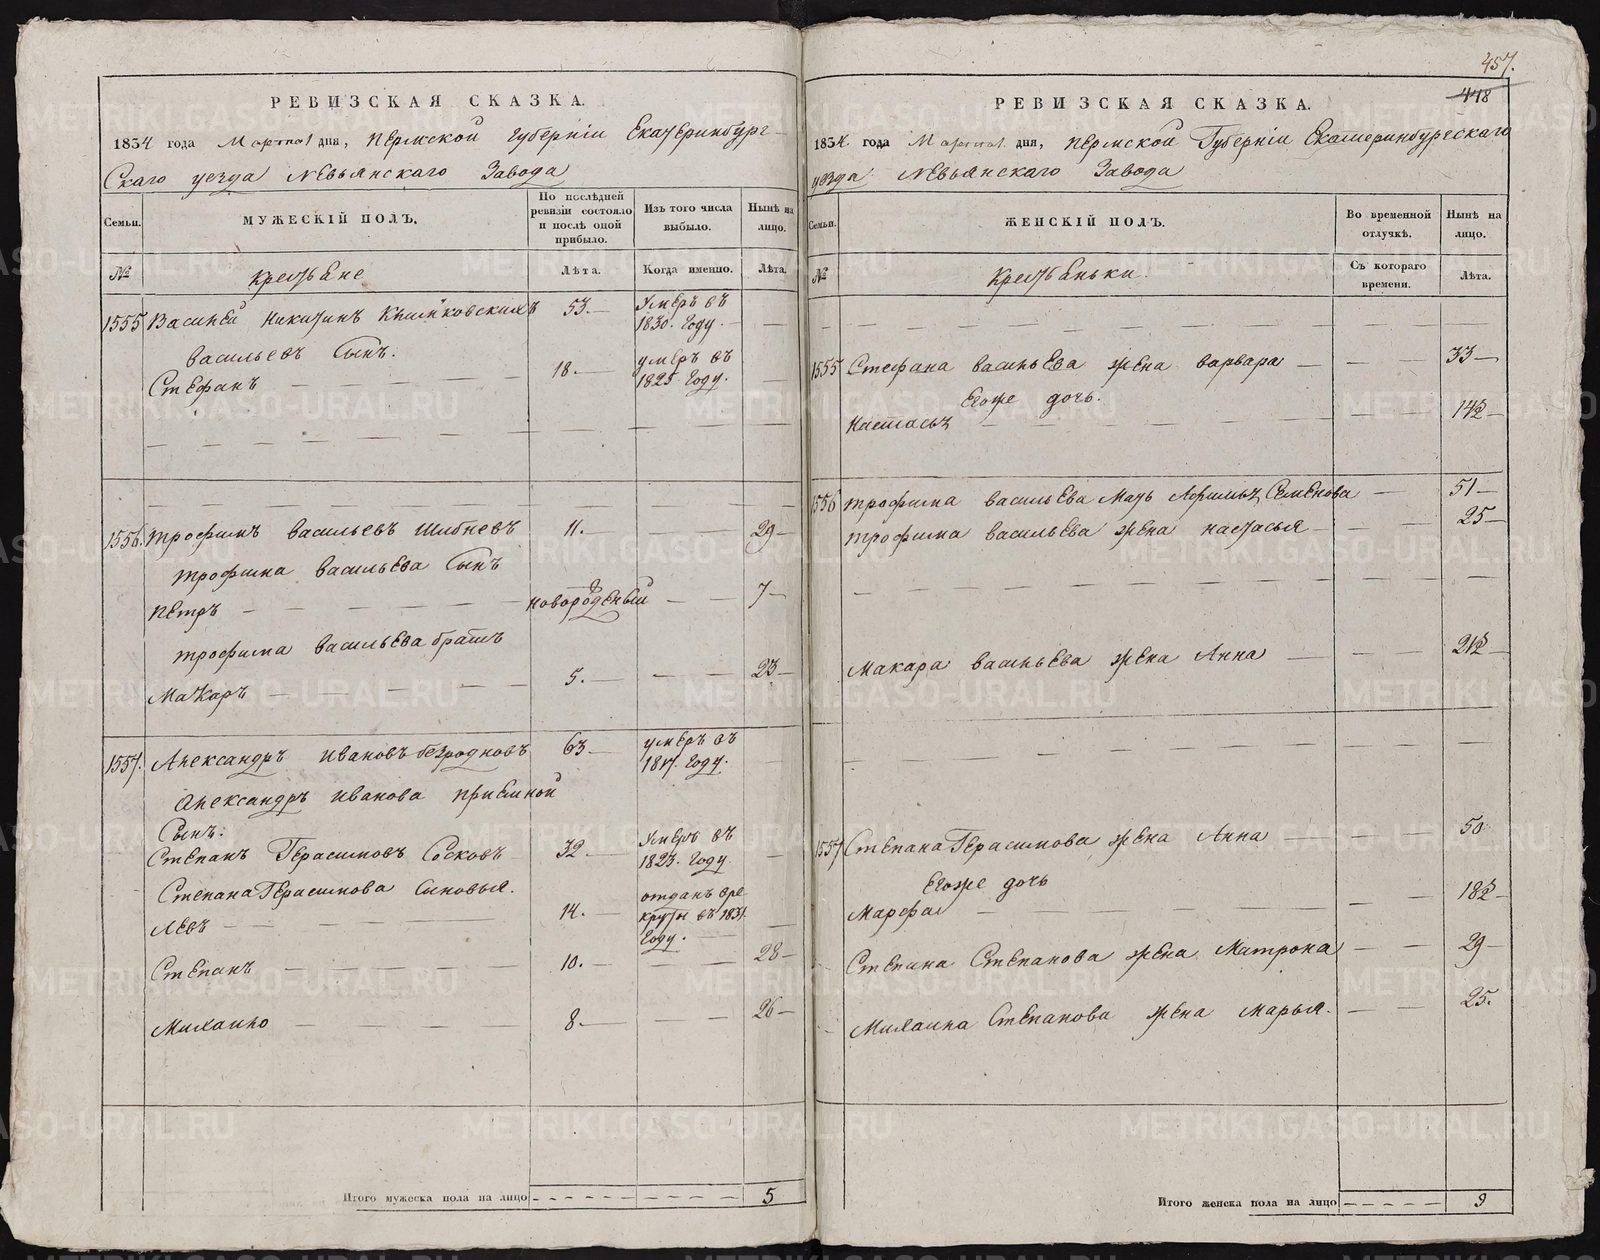 457.
448
РЕВИЗСКАЯ СКАЗКА.
1834 года Марта дня, Пермской Губерніи Екатеринбург-
Скаго уезда Невьянскаго Завода
Семьи.
МУЖЕСКІЙ ПОЛЪ.
По послѣдней ревизіи состояло и послѣ оной прибыло.
Изъ того числа выбыло.
Нынѣ на лицо.
№
Крестьяне
Лѣта.
Когда именно.
Лѣта.
1555 Василей Никитинъ 53. Умеръ въ 1830. Году.
Васильевъ Сынъ.
Стефанъ 18. умеръ въ 1825. Году.
1556. Трофимъ Васильевъ 11. 29
Трофима Васильева Сынъ
Петръ новорожденый 7
Трофима Васильева братъ
Макаръ 5. 23
1557. Александръ Ивановъ безродновъ 63 умеръ въ 1817. Году.
Александръ Иванова приемной
Сынъ.
Степанъ Герасимовъ Сосковъ 32. Умеръ въ 1823. Году
Степана Герасимова Сыновья.
Левъ 14. отданъ вре круты въ 1831. Году.
Степанъ 10. 28
Михаило 8. 26
Итого мужеска пола на лицо 5
РЕВИЗСКАЯ СКАЗКА.
1834. года Марта дня, Пермской Губерніи Екатеринбургскаго
уезда Невьянскаго Завода
Семьи.
ЖЕНСКІЙ ПОЛЪ.
Во временной отлучкѣ.
Нынѣ на лицо.
№
Крестьянки.
Съ котораго времени.
Лѣта.
1555 Стефана Васильева жена Варвара 33
Егоже дочь.
Настасья
1556 Трофима Васильева Мать Афимья Семенова 51
Трофима Васильева жена настасья 25
Макара Васильева жена Анна
1557 Степана Герасимова жена Анна 50
Егоже дочь
Марфа
Степана Степанова жена Матрона 29
Михаила Степанова жена Марья. 25.
Итого женска пола на лицо 9
METRIKI.GASO-URAL.RU